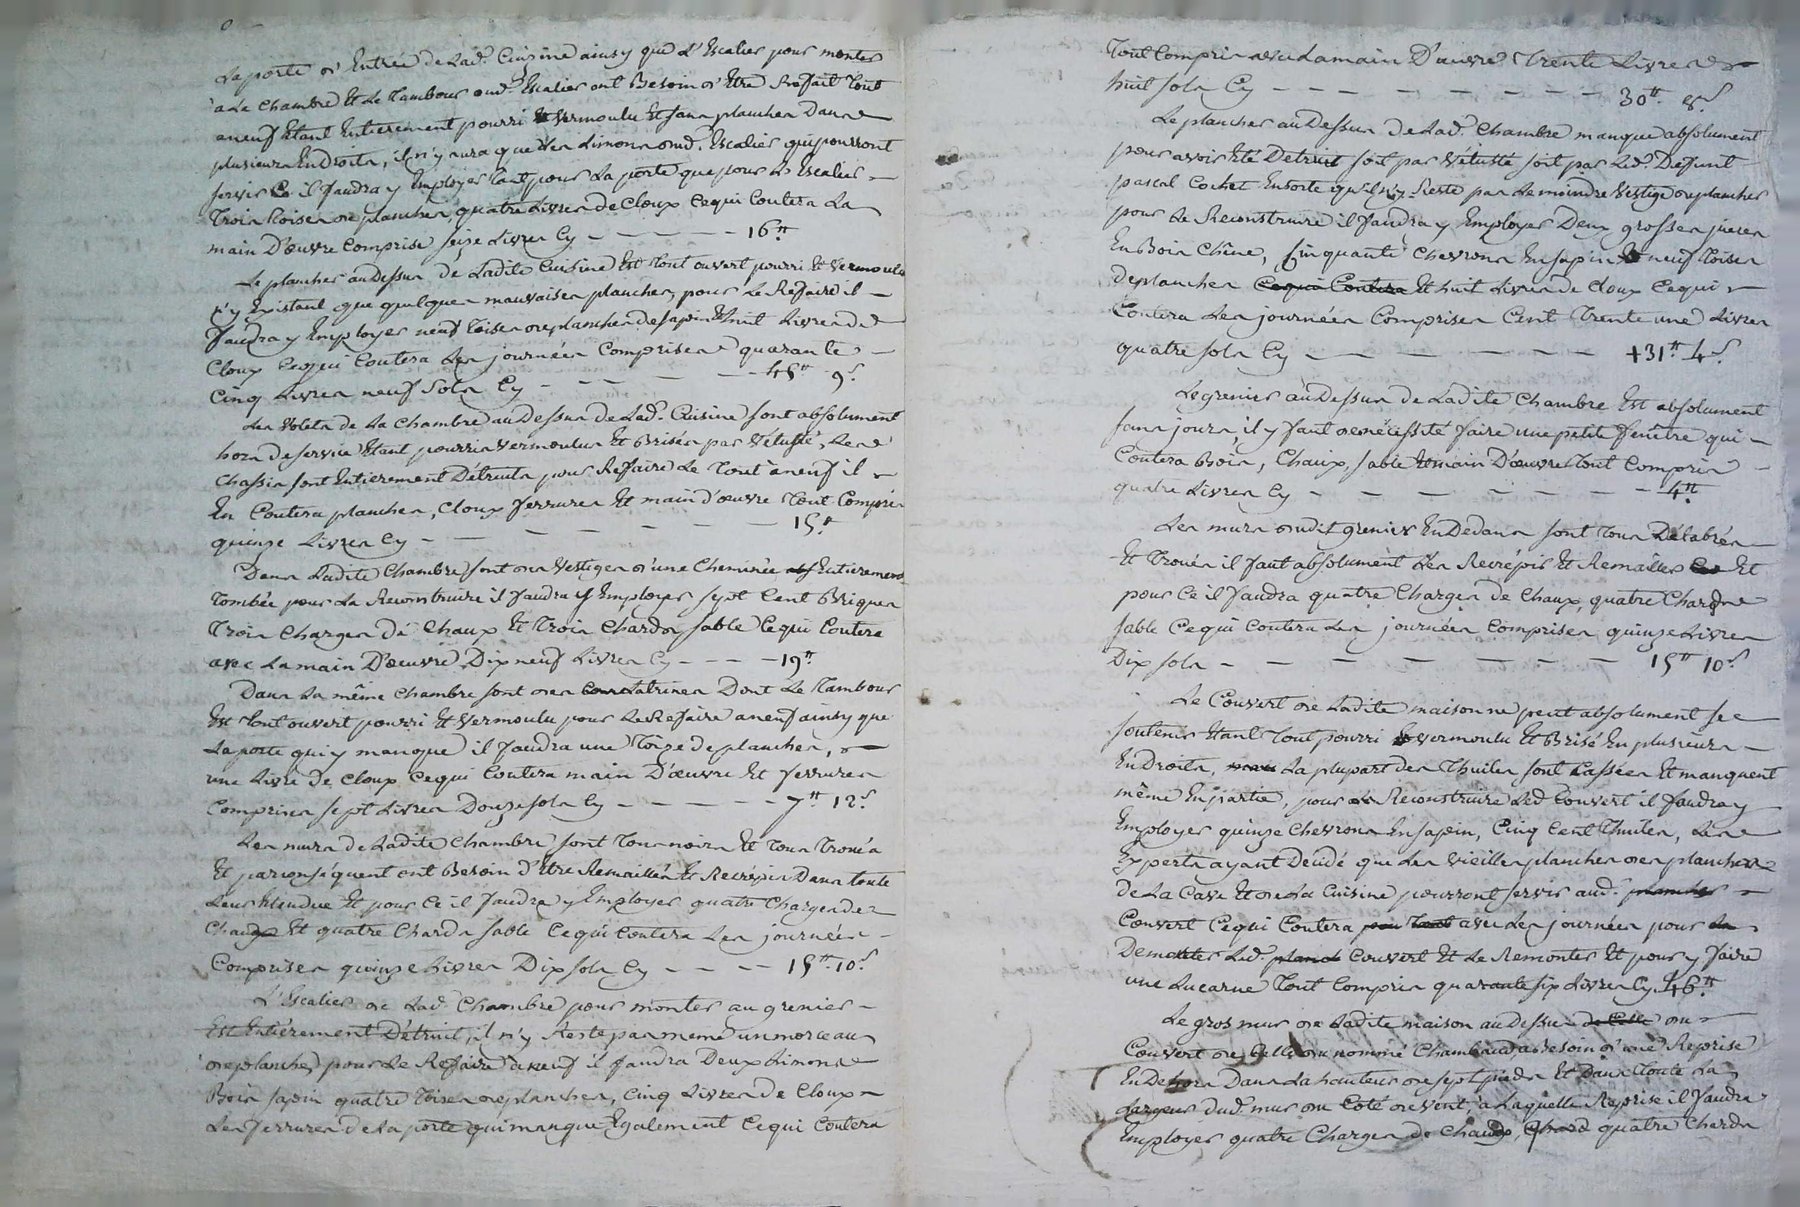 La porte d'Entrée de Lad.e Cuisine ainsy que L'Escalier pour monter
a La Chambre Et Le Tambour dud. Escalier ont Besoin d'Etre Refait Tout
aneuf Etant Entierement pourri Et Vermoulu Et sans planches Dans
plusieurs Endroits, il n'y aura que Les Limons dud. Escalier qui pourront
servir Ce il faudra y Employer tant pour La porte que pour L'Escalier
Trois Toises de planches, quatre Livres de Cloux Cequi Coutera La
main D'œuvre Comprise seize Livres Cy - - - - - 16tt
Le plancher audessus de Ladite Cuisine Est Tout ouvert pourri Et Vermoulu
n'y Existant que quelques mauvaises planches, pour Le Refaire il
faudra y Employer neuf Toises de planches de sapin Et huit Livres de
Cloux Cequi Coutera Les journées Comprises quarante
Cinq Livres neuf Sols Cy - - - - - 45tt 9s
Les Volets de La Chambre audessus de Lad.e Cuisine sont absolument
hors de service Etant pourris Vermoulus Et Brisés par Vétusté, Les
Chassis sont Entierement Détruits pour Refaire Le Tout aneuf il
En Coutera planches, Cloux ferrures Et main d'œuvre Tout Compris
quinze Livres Cy - - - - - - 15tt
Dans Ladite Chambre sont des Vestiges d'une Cheminée Entierement
Tombée pour La Reconstruire il faudra y Employer sept Cent Briques
Trois Charges de Chaux Et Trois Chards sable Cequi Coutera
avec La main D'œuvre Dix neuf Livres Cy - - - - 19tt
Dans La même Chambre sont des Latrines Dont Le Tambour
Est Tout ouvert pourri Et Vermoulu pour Le Refaire aneuf ainsy que
La porte qui y manque il faudra une Toize de planches,
une Livre de Cloux Cequi Coutera main D'œuvre Et ferrures
Comprises sept Livres Douze sols Cy - - - - - 7tt 12s
Les murs de Ladite Chambre sont Tous noirs Et Tous Troués
Et par conséquent ont Besoin d'Etre Remaillés Et Recrépis Dans toute
Leur Etendue Et pour Ce il faudra y Employer quatre Charges de
Chaux Et quatre Chards sable Cequi Coutera Les journées
Comprises quinze Livres Dix sols Cy - - - - 15tt 10s
L'Escalier de Lad.e Chambre pour monter au grenier
Est Entiérement Détruit, il n'y Reste pas meme un morceau
de planche, pour Le Refaire aneuf il faudra Deux Limons
Bois sapin quatre Toises de planches, Cinq Livres de Cloux
Les ferrures de La porte qui manque Egalement Cequi Coutera
Tout Compris avec La main D'œuvre Trente Livres
huit sols Cy - - - - - - - - - 30tt 8s
Le plancher audessus de Lad.e Chambre manque absolument
pour avoir Eté Détruit soit par Vétusté soit par Led. Defunt
pascal Cochet Ensorte qu'il n'y Reste pas Le moindre Vestige de plancher
pour Le Reconstruire il faudra y Employer Deux grosses pieces
En Bois Chêne, Cinquante Chevrons En sapin Et neuf Toises
de planches Cequi Coutera Et huit Livres de Cloux Cequi
Coutera Les journées Comprises Cent Trente une Livres
quatre sols Cy - - - - - - - 131tt 4s
Le grenier audessus de Ladite Chambre Est absolument
sans jours, il y faut de nécessité faire une petite fenêtre qui
Coutera Bois, Chaux, sable Et main D'œuvre Tout Compris
quatre Livres Cy - - - - - - - 4tt
Les murs dudit grenier En Dedans sont Tous Délabrés
Et Troués il faut absolument Les Recrépir Et Remailler Et
pour Ce il faudra quatre Charges de Chaux, quatre Chards
sable Cequi Coutera Les journées Comprises quinze Livres
Dix sols - - - - - - - - 15tt 10s
Le Couvert de Ladite maison ne peut absolument se
soutenir Etant Tout pourri Vermoulu Et Brisé En plusieurs
Endroits, La plupart des Thuiles sont Cassées Et manquent
même En partie, pour Reconstruire Led. Couvert il faudra y
Employer quinze Chevrons En sapin, Cinq Cent Thuiles, Les
Experts ayant Décidé que Les vieilles planches des planchers
de La Cave Et de La Cuisine pourront servir aud. plancher
Couvert Cequi Coutera avec Les journées pour
Demonter Led. Couvert Et Le Remonter Et pour y faire
une Lucarne Tout Compris quarante six Livres Cy 46tt
Le gros mur de Ladite maison audessus du
Couvert de Celle du nommé Chambaud a Besoin d'une Reprise
En Dehors Dans La hauteur de sept pieds Et Dans Toute La
Largeur dud. mur du Coté de vent, a Laquelle Reprise il faudra
Employer quatre Charges de Chaux, quatre Chards